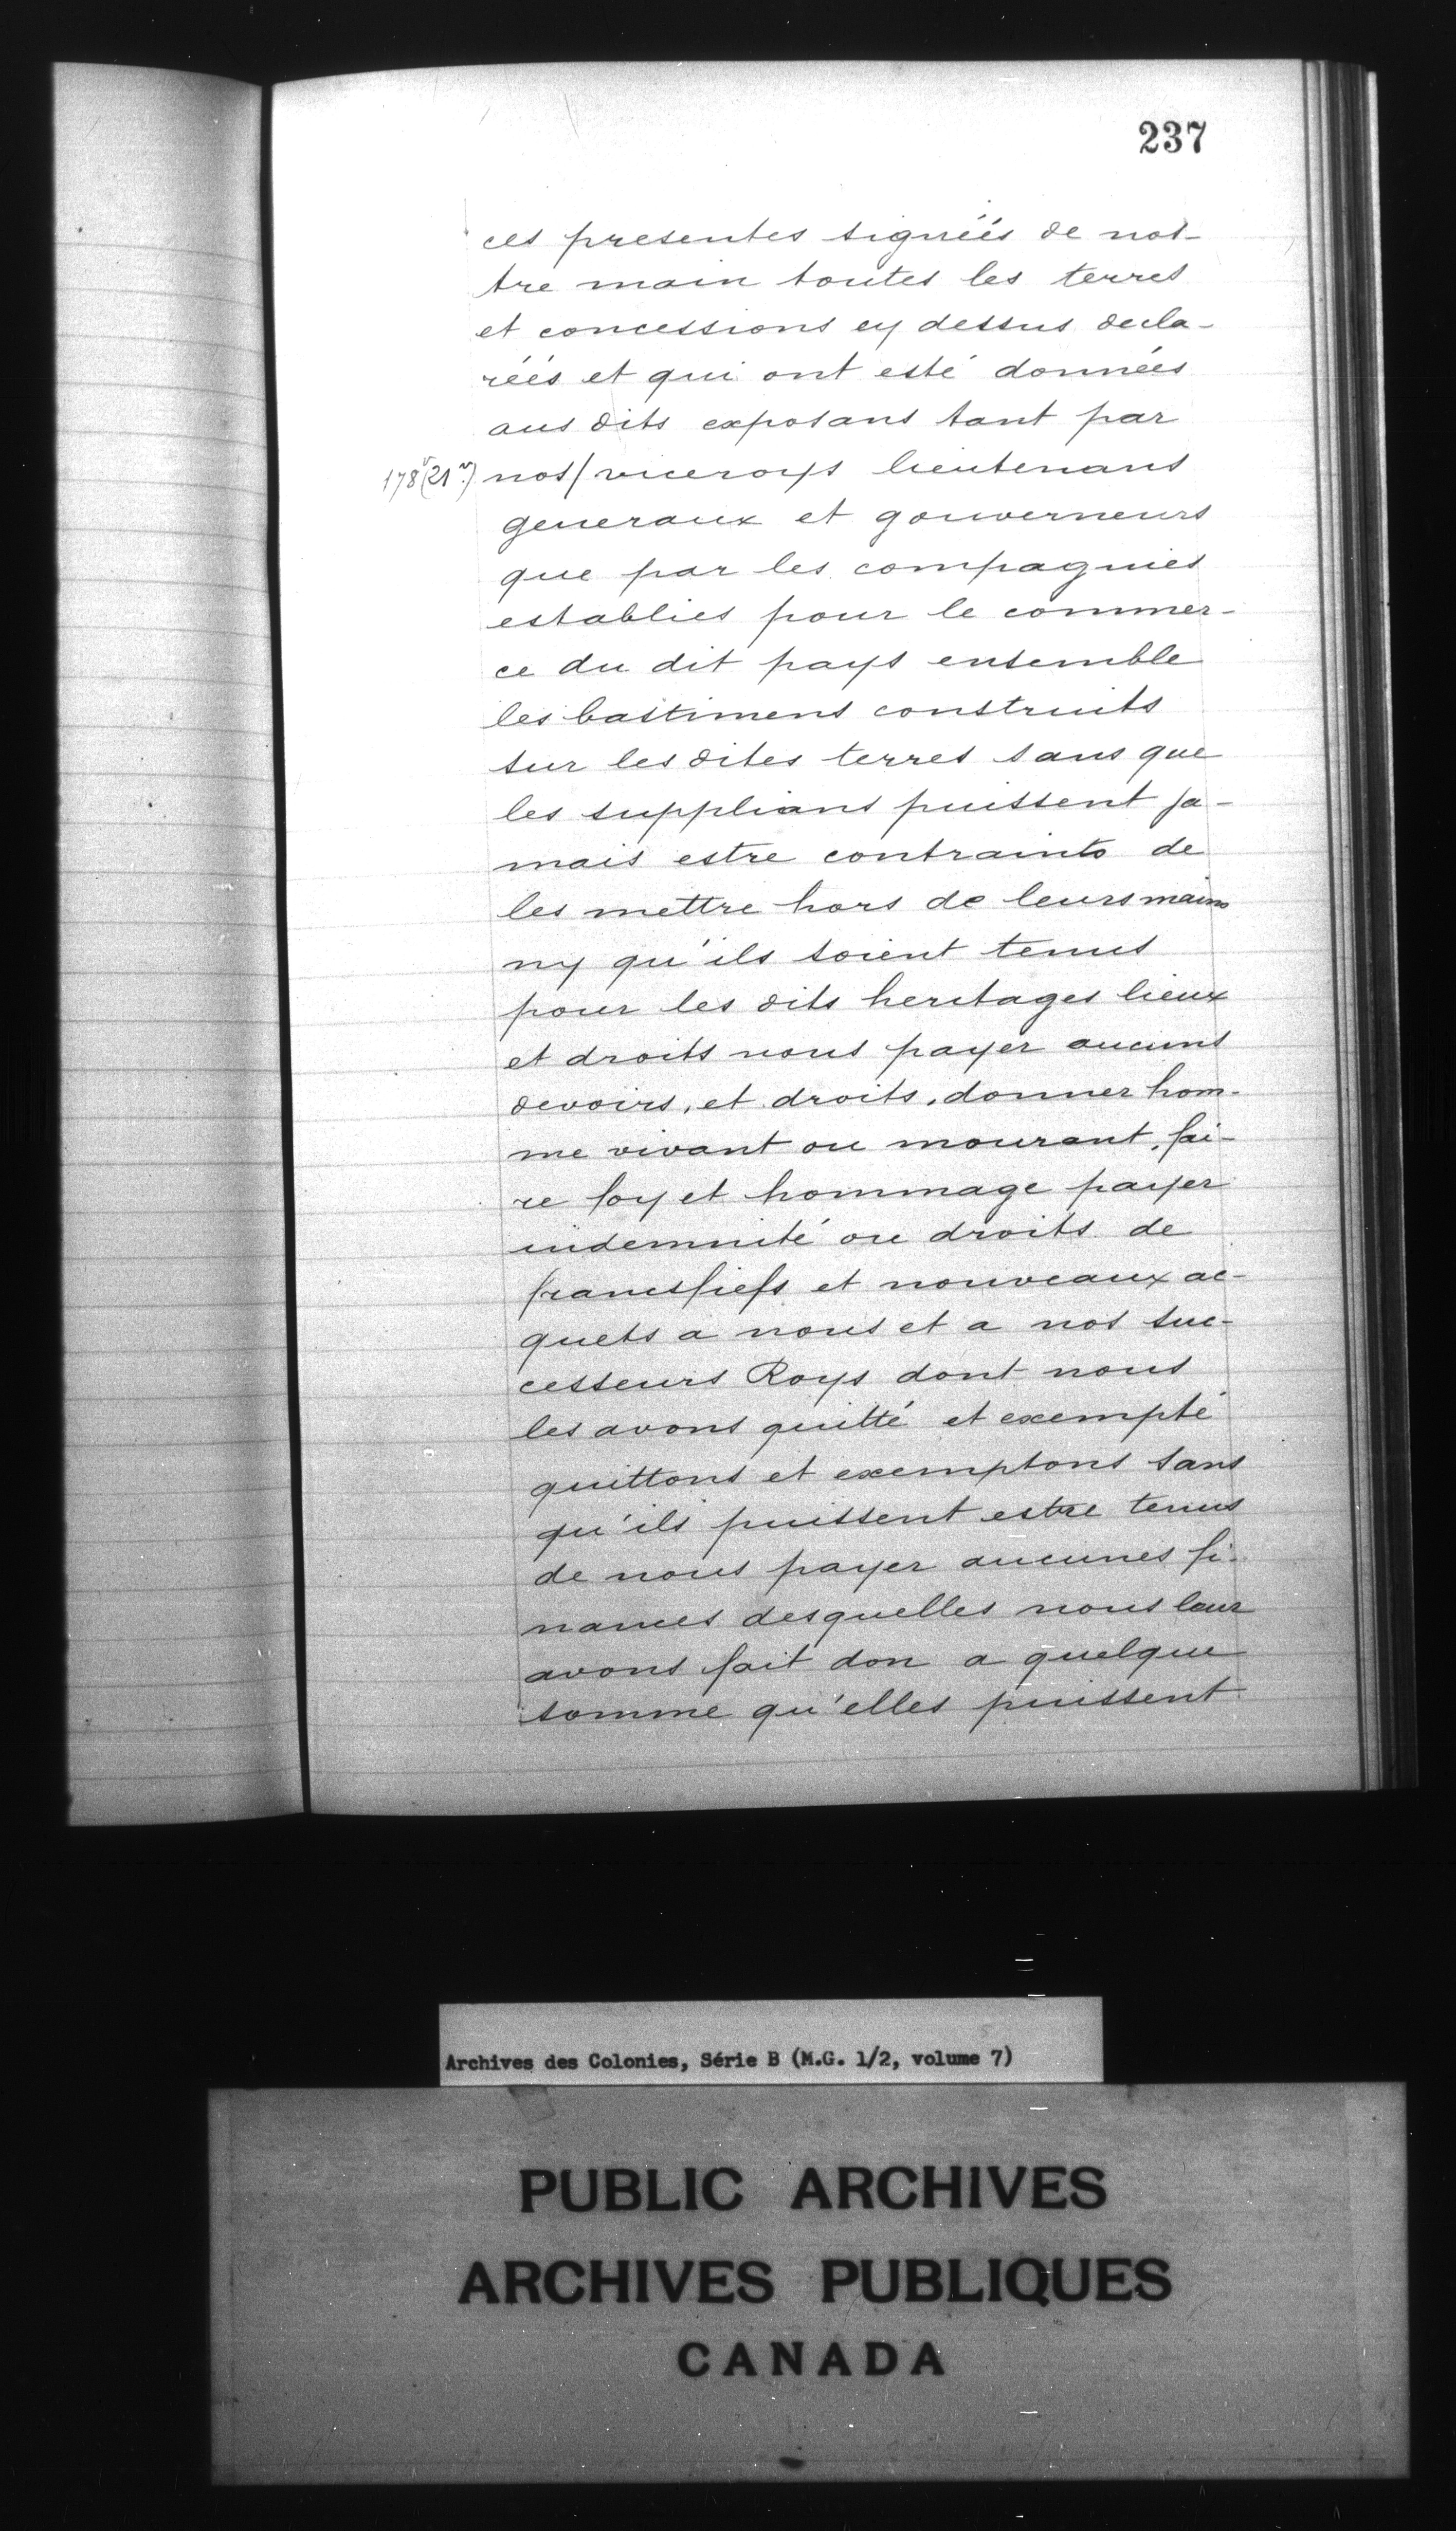 237
ces presentes signéés de nos-
tre main toutes les terres
et concessions cy dessus decla-
réés et qui ont esté données
aus dits exposans tant par
178v (21v) nos/viceroys lieutenans
generaux et gouverneurs
que par les compagnies
establies pour le commer-
ce du dit pays ensemble
les bastimens construits
sur les dites terres sans que
les supplians puissent ja-
mais estre contraints de
les mettre hors de leurs mains
ny qu'ils soient tenus
pour les dits heritages lieux
et droits nous payer aucuns
devoirs, et droits, donner hom-
me vivant ou mourant, fai-
re foy et hommage payer
indemnité ou droits de
francsfiefs et nouveaux ac-
quets a nous et a nos suc-
cesseurs Roys dont nous
les avons quitté et exempté
quittons et exemptons sans
qu'ils puissent estre tenus
de nous payer aucunes fi-
nances desquelles nous leur
avons fait don a quelque
somme qu'elles puissent
Archives des Colonies, Série B (M.G. 1/2, volume 7)
PUBLIC ARCHIVES
ARCHIVES PUBLIQUES
CANADA